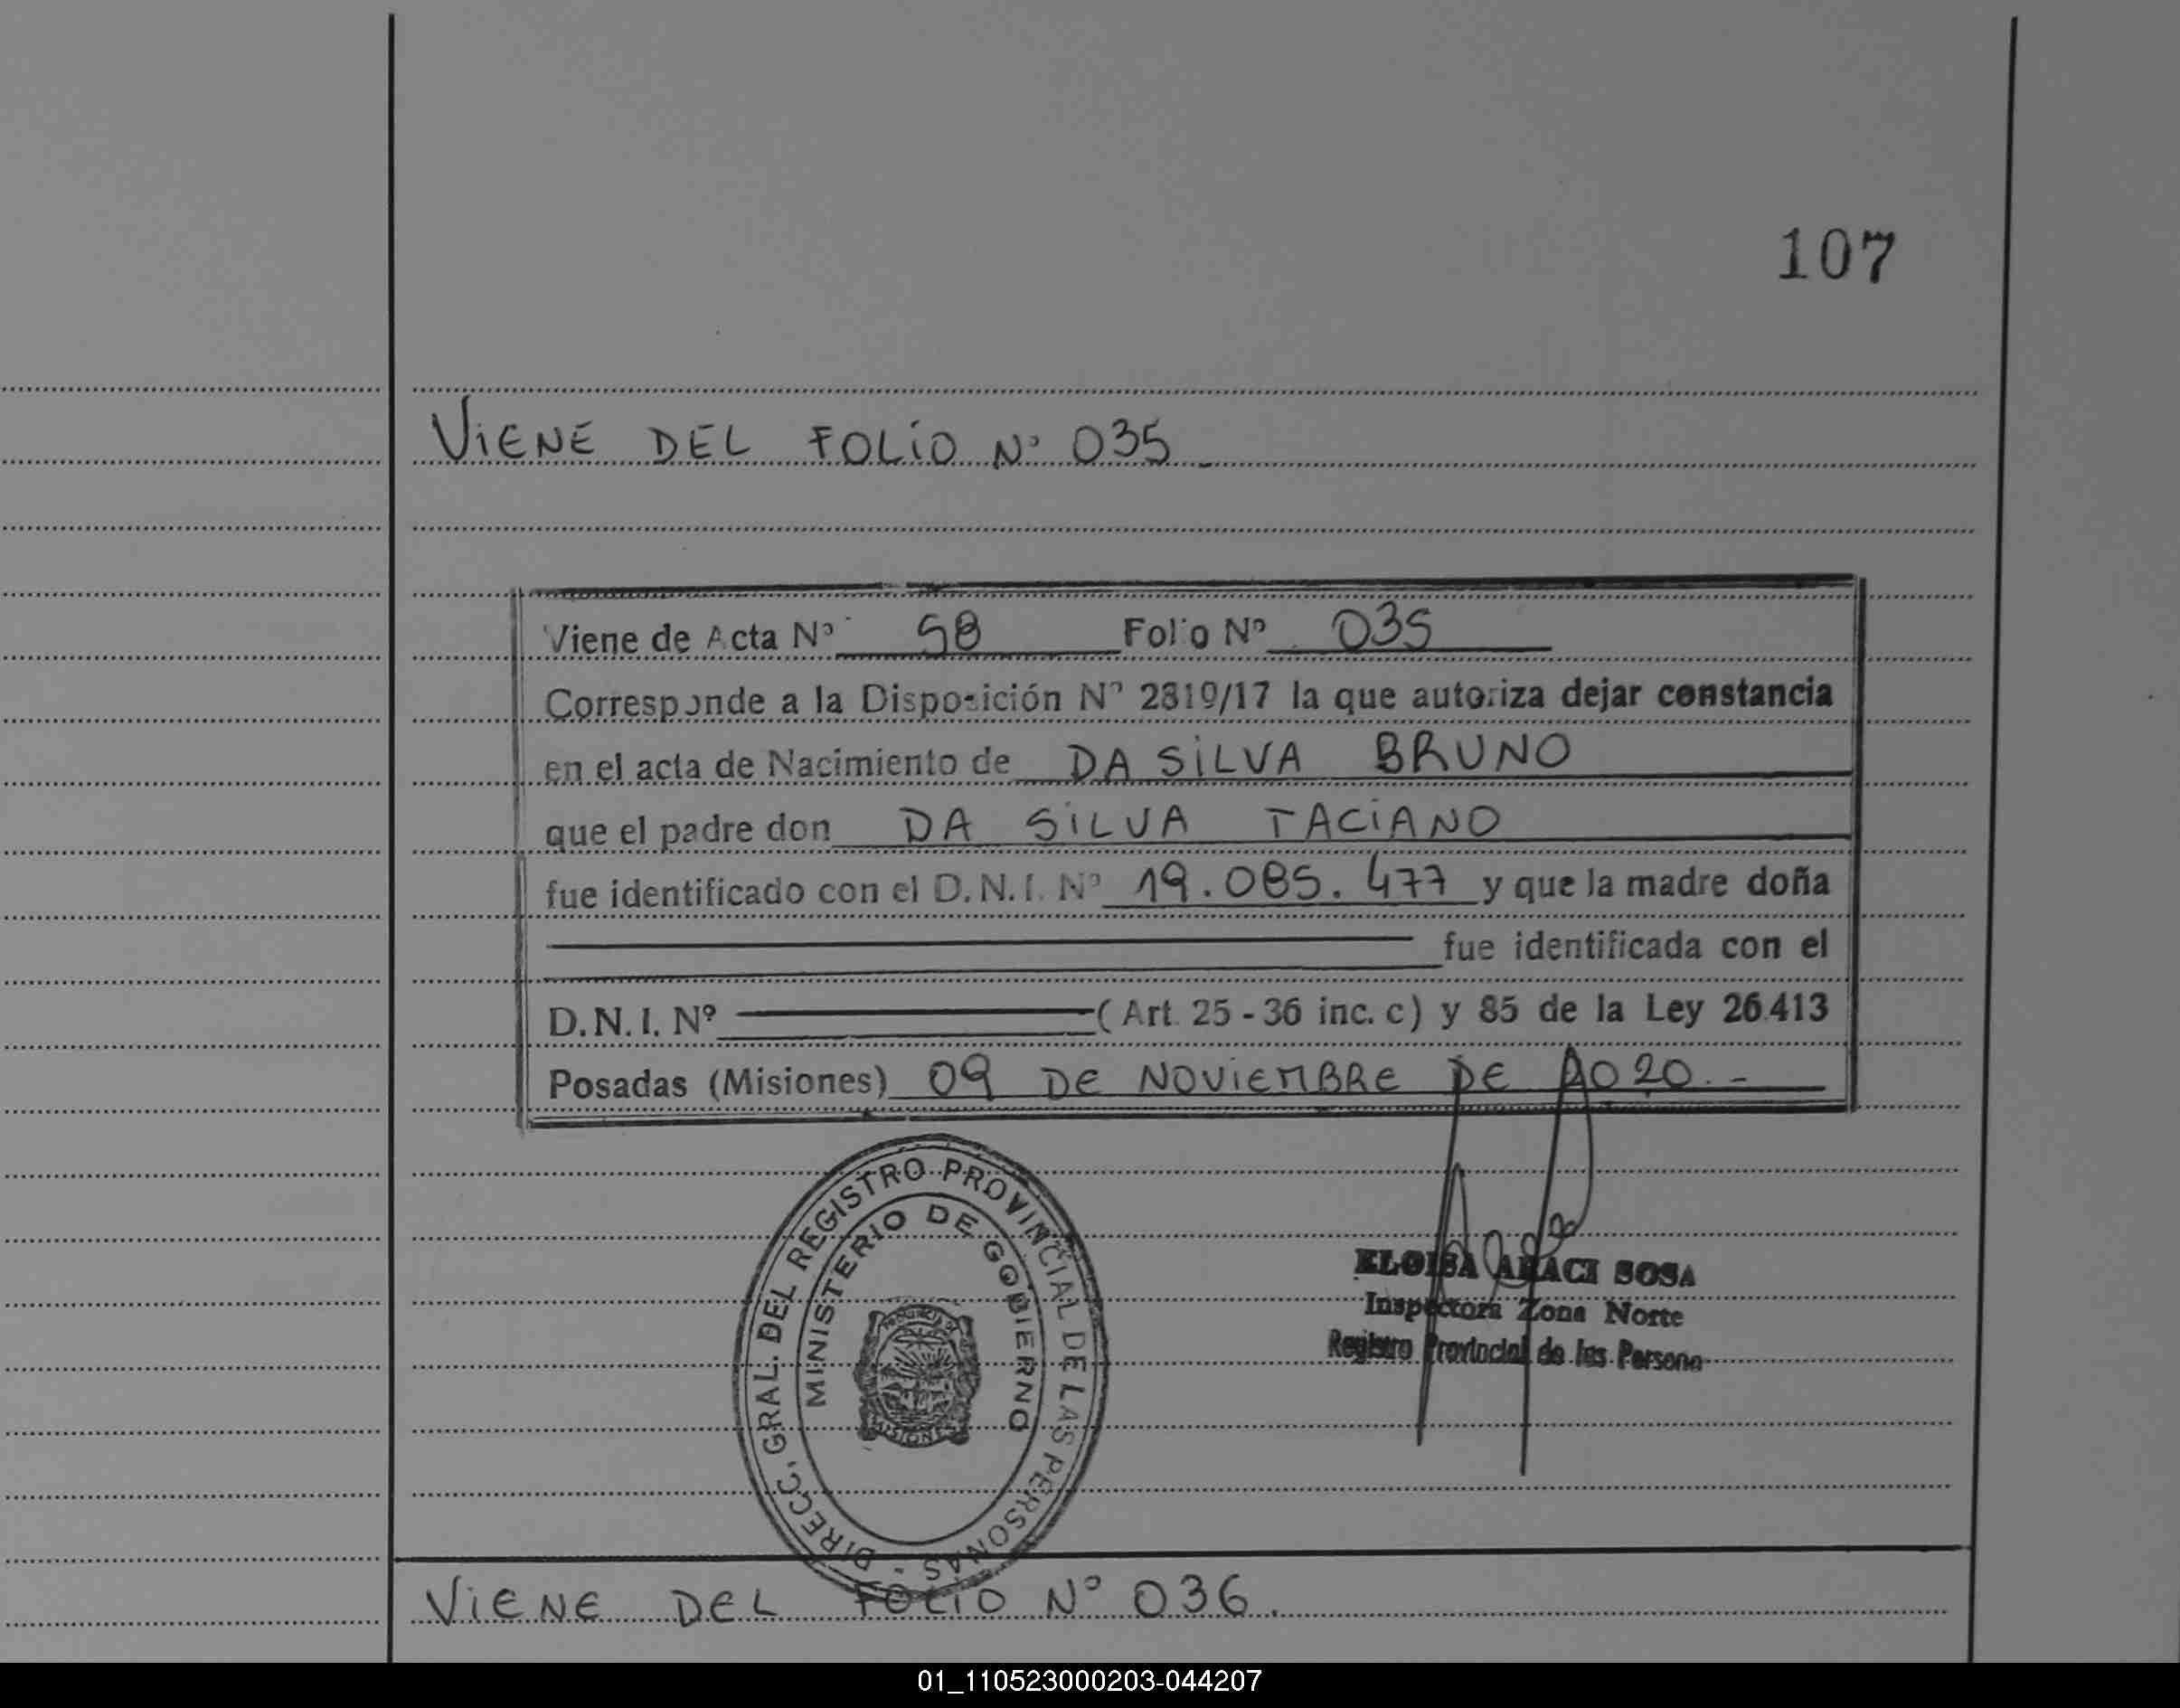 107
ViENE DEL FOLiO Nº 035
Viene de Acta Nº 58 Folio Nº 035
Corresponde a la Disposición Nº 2819/17 la que autoriza dejar constancia
en el acta de Nacimiento de DA SiLVA BRUNO
que el padre don DA SiLVA TACiANO
fue identificado con el D.N.I. Nº 19.085.477 y que la madre doña
fue identificada con el
D.N.I. Nº (Art. 25 - 36 inc. c) y 85 de la Ley 26.413
Posadas (Misiones) 09 DE NOViEMBRE DE 2020.-
DIRECC. GRAL. DEL REGISTRO PROVINCIAL DE LAS PERSONAS -
MINISTERIO DE GOBIERNO
PROVINCIA DE
MISIONES
ELOISA ARACI SOSA
Inspectora Zona Norte
Registro Provincial de las Persona
ViENE DEL FOLiO Nº 036.
01_110523000203-044207